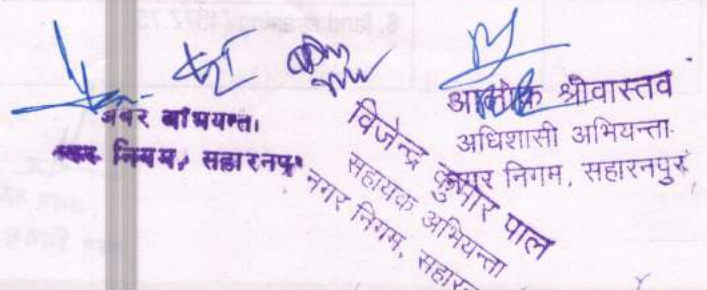 अवर अभियन्ता
नगर निगम, सहारनपुर
विजेन्द्र कुमार पाल
सहायक अभियन्ता
नगर निगम,
आलोक श्रीवास्तव
अधिशासी अभियन्ता
नगर निगम, सहारनपुर